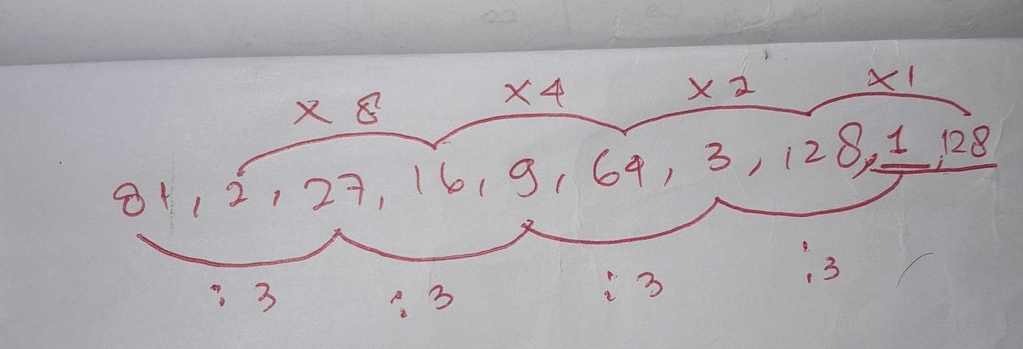 x 8 x 4 x 2 x 1
81, 2, 27, 16, 9, 64, 3, 128, 1, 128
: 3 : 3 : 3 : 3